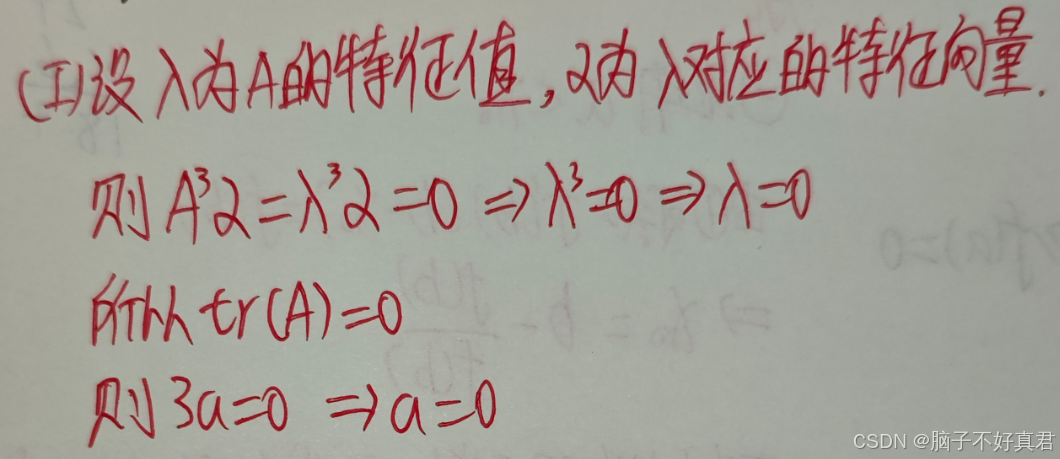 (I)设λ为A的特征值,α为λ对应的特征向量.
则 A³α=λ³α=0 ⇒ λ³=0 ⇒ λ=0
所以 tr(A)=0
则 3a=0 ⇒ a=0
CSDN @脑子不好真君